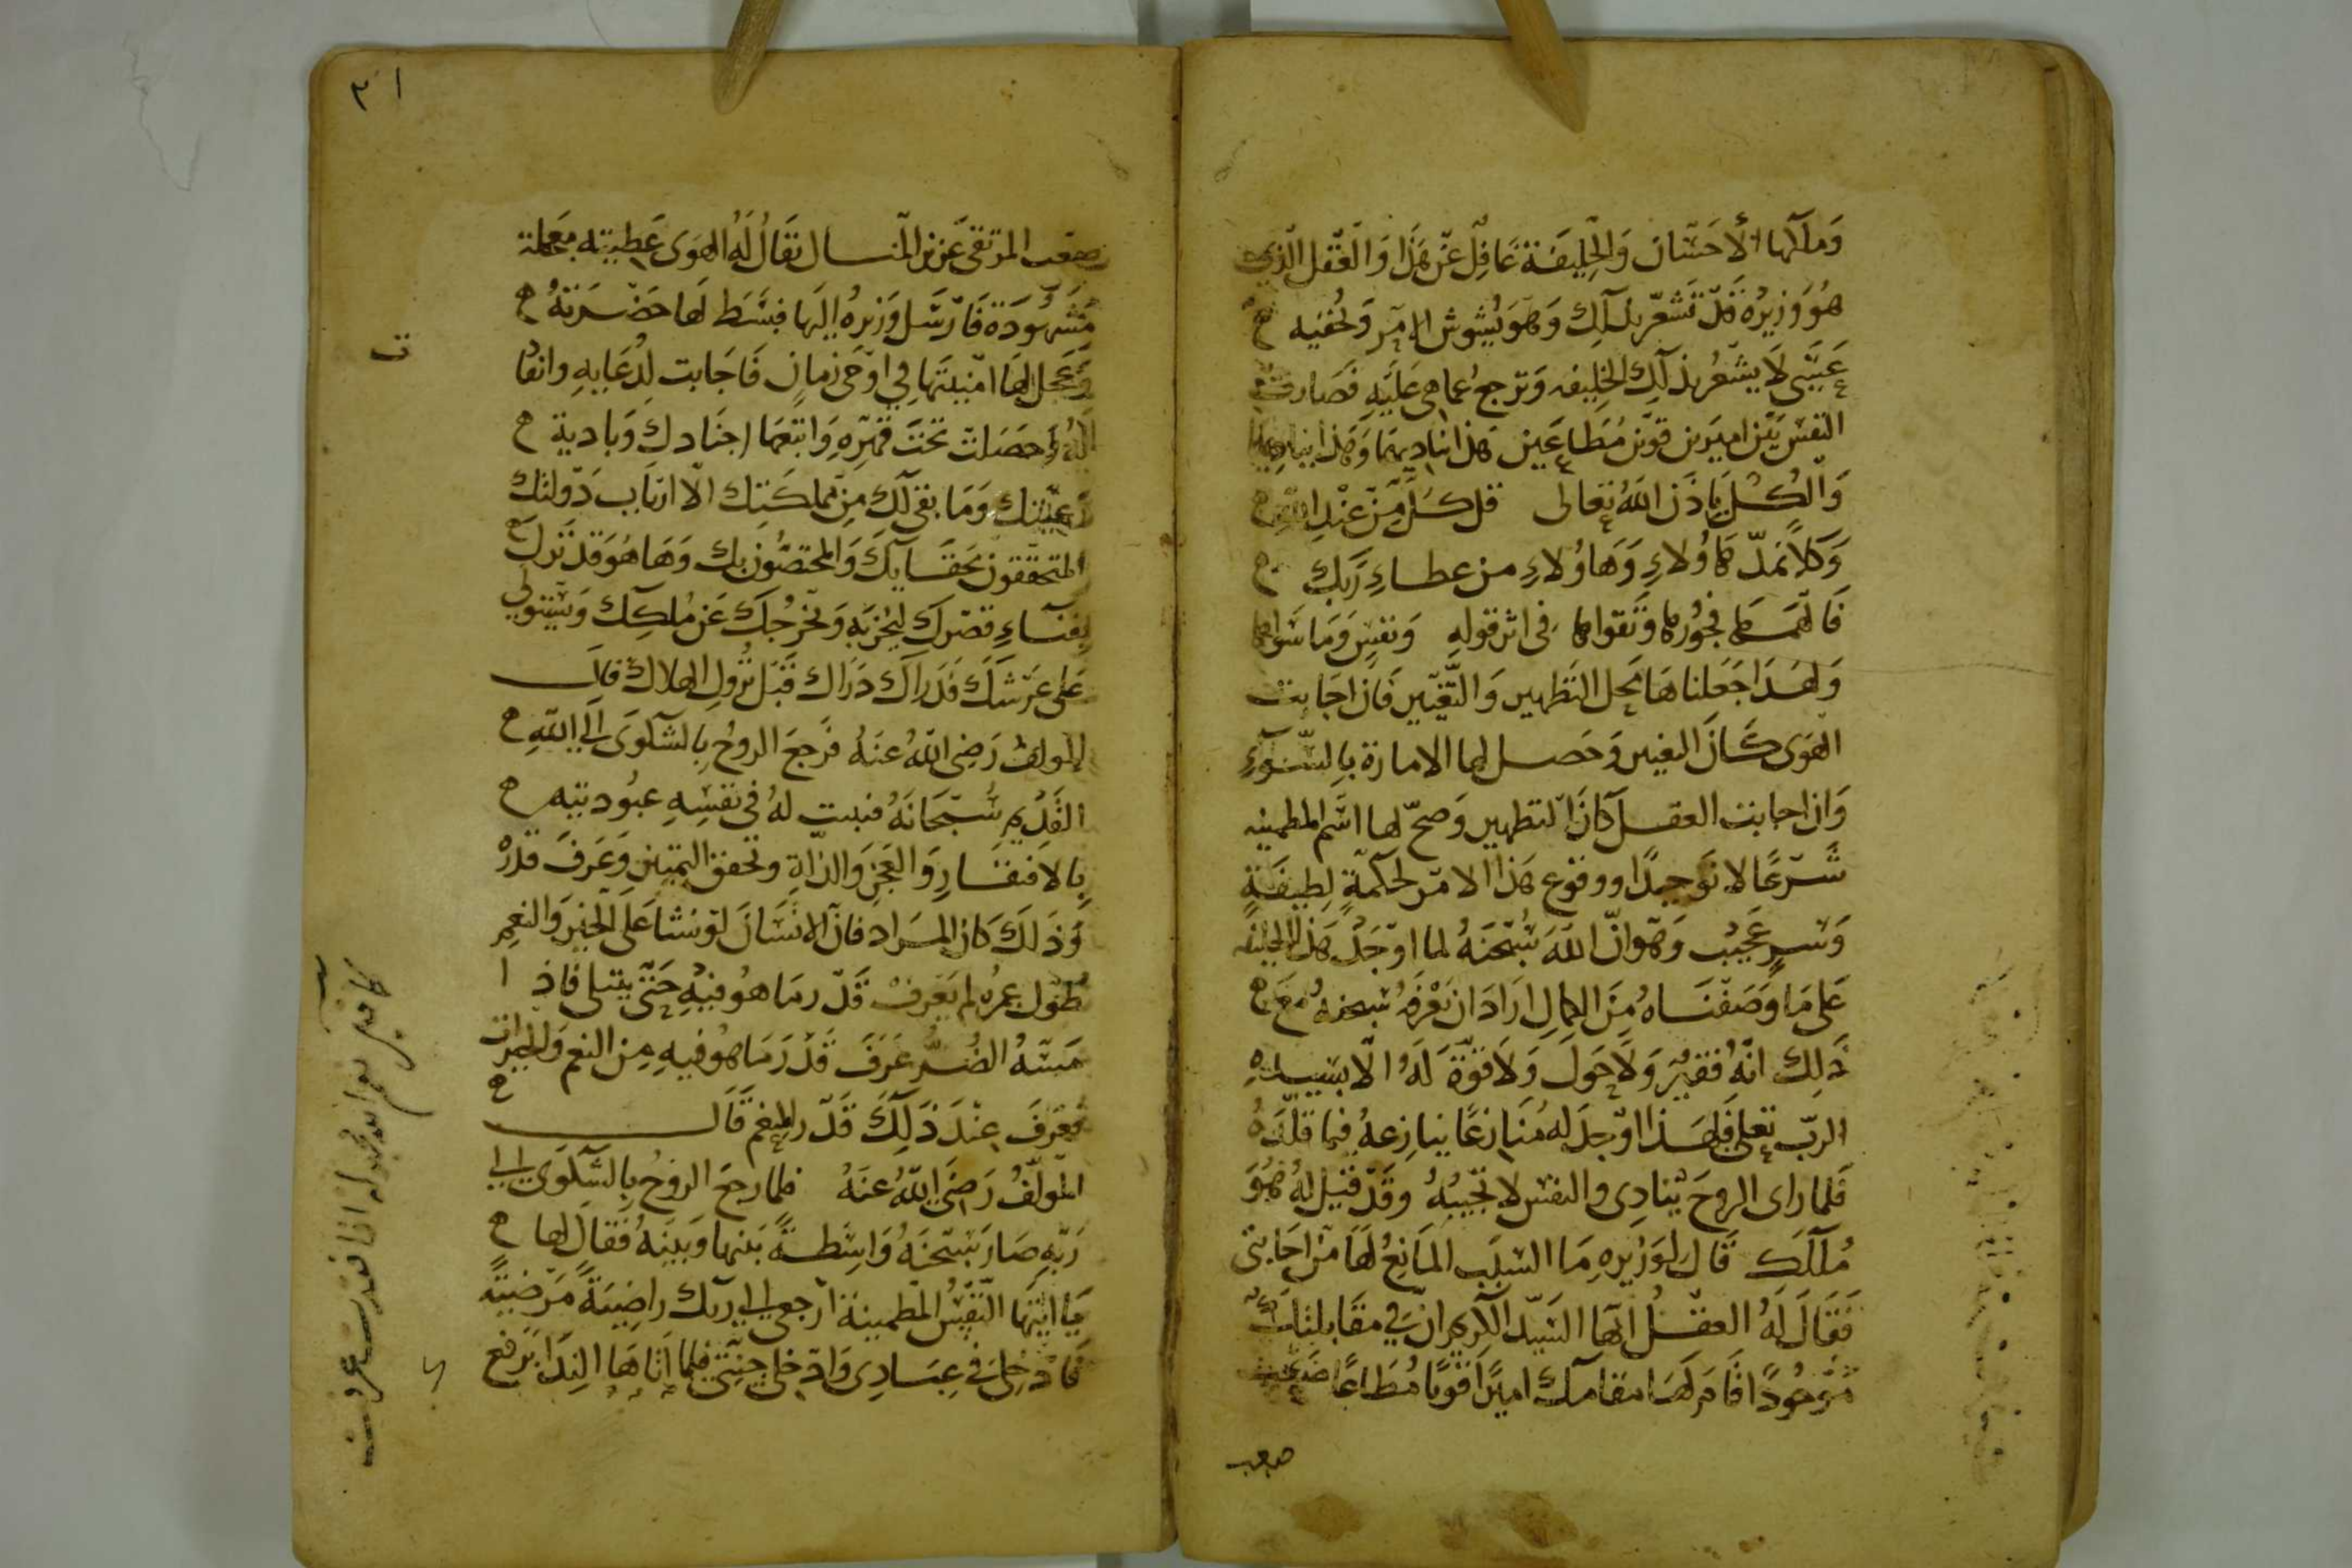 وَمَآلها الأحسان وَالخليفَة غافل عَن هَذا وَالعَقل الّذِي
هُوَ وزيرُه قَد تشعّر بذلك وَهوَ يُشوش الامر وَيُخفيه
عَسَى لا يشعُر بذلك الخليفه وَترجع عماهى عَليَهِ فصَارت
النفس بَيَن اميرين قويّين مُطَاعَين هَذا يناديهَا وَهَذا يناديها
وَالكُل باذن اللهِ تعالى قل كل مِّن عِنْدِ الله
وَكلاً نمدّ هَاؤُلاءِ وَهَاؤُلاءِ من عطاءِ رَبِك
فَالهَمَها فجُورَها وَتَقواها في اثر قوله وَنفسٍ وَمَا سَواها
وَلهَذا جَعَلناهَا مَحل التطهير وَالتّغيّير فَان اجَابت
الهَوى كَانَ التغيير وَحَصل لها الامارة بِالسُّوءِ
وَان اجابت العقل كانَ التطهير وَصحّ لها اسَم المطمينه
شَرْعًا لا تَوحيدًا ووقوع هَذا الامر لحكمَةٍ لطِيفَةٍ
وَسرٍ عَجيب وَهوَ انّ اللهَ سُبْحنَهُ لما اوْجَدَ هَذا الخليفه
عَلى مَا وَصَفْنَاه مِنَ الكمالِ ارَادَ ان يَعْرفهُ سبحنه مَعَ
ذَلِك انّهُ فقيرٌ وَلا حَولَ وَلا قوّة لَهُ الّا بسَيده
الربّ تعلى فَلِهَذا اوْجدَ لهُ مُنَازعًا ينازعهُ فيما قلّدَهُ
فَلما راى الروحَ يُنادِى والنفس لا تجيبُهُ وقَد قيل لهُ هُوَ
مُلكك قال لوَزيره مَا السَبَب المانِعُ لَهَا مِن اجَابتى
فَقَالَ لَهُ العقلُ ايّها السَيّد الكريم انّ في مقابلتك
مَوْجُودًا قامَ لَهَا مقامك اميرًا قويًا مُطَاعًا صَعب
صعب
٣١
صعب المرتقى عَزيز المنال يقالُ لَهُ الهَوى عَطيته معَجلة
مَشهُودَة فَارْسَل وَزيرهُ اليها فبسَط لها حَضْرَتهُ
وَعَجل لها امنيتَها في اوْحَى زمانٍ فَاجَابت لِدُعَايهِ وانقا
لهُ وَحصَلت تحتَ قهرِهِ وَاتبَعهَا اجنَادك وَبادية
رَعيّتك وَمَا بقى لكَ مِن مملكَتِك الّا ارباب دَولتك
المتحققون بحَقايِقكَ وَالمختصّون بك وَهَا هُوَ قَد نَزلَ
بفناءِ قصْرك ليخربَه وَيُخرجُكَ عَن مُلكِك وَيَستولي
عَلى عَرْشكَ فدَراكَ دَرَاك قبْل نُزولِ الهلاك قال
المولف رَضِىَ اللّهُ عنَهُ فرَجعَ الروحُ بِالشكوَى الى اللّهِ
القَديم سُبْحَانَهُ فثبت لهُ في نفسِهِ عبُوديته
بِالافتقارِ وَالعَجز وَالذلّة وتحقق التميّيز وَعَرفَ قدْرَهُ
وَذلكَ كان المرَاد فانّ الانسَانَ لوْ نشَا عَلى الخَير وَالنعِم
طول عمرُه لم يَعرف قَدْرَ مَا هُو فيْهِ حَتى يبتلى فاذا
مَسّهُ الضُرُّ عَرَفَ قَدْرَ مَا هُو فيهِ مِن النعم وَالخيرات
فعَرَفَ عِنْدَ ذلِكَ قَدْر المنعم قَالَ
المولفُ رَضِىَ اللّهُ عنَهُ فلما رجعَ الروحُ بِالشكوَى الى
رَبّهِ صَارَ سُبْحنَهُ وَاسِطةً بَينها وَبينهُ فَقالَ لها
يَا ايّتهَا النّفسُ المطمينة ارْجعِى الى ربّك راضِيَةً مَرْضِيّةً
فَادْخلى في عِبادِى وَادْخلى جنّتِى فلما اتاهَا النِدَا ارْتفع
ت